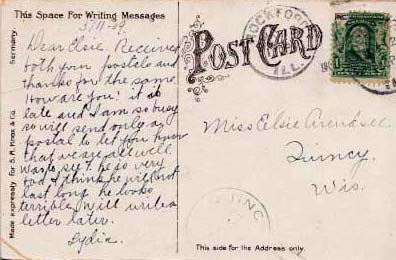 This Space For Writing Messages
Dear Elsie. Received
both your postals and
thanks for the same.
How are you? it is
late and I am so busy
so will send only a
postal to let you know
that we are all well.
is very
bad I think he will not
last long he looks
terrible will write a
letter later.
Lydia.
Made expressly for S. H. Knox & Co. Germany.
POST CARD
ROCKFORD
ILL.
Miss Elsie Arendsee
Quincy
Wis.
This side for the Address only.